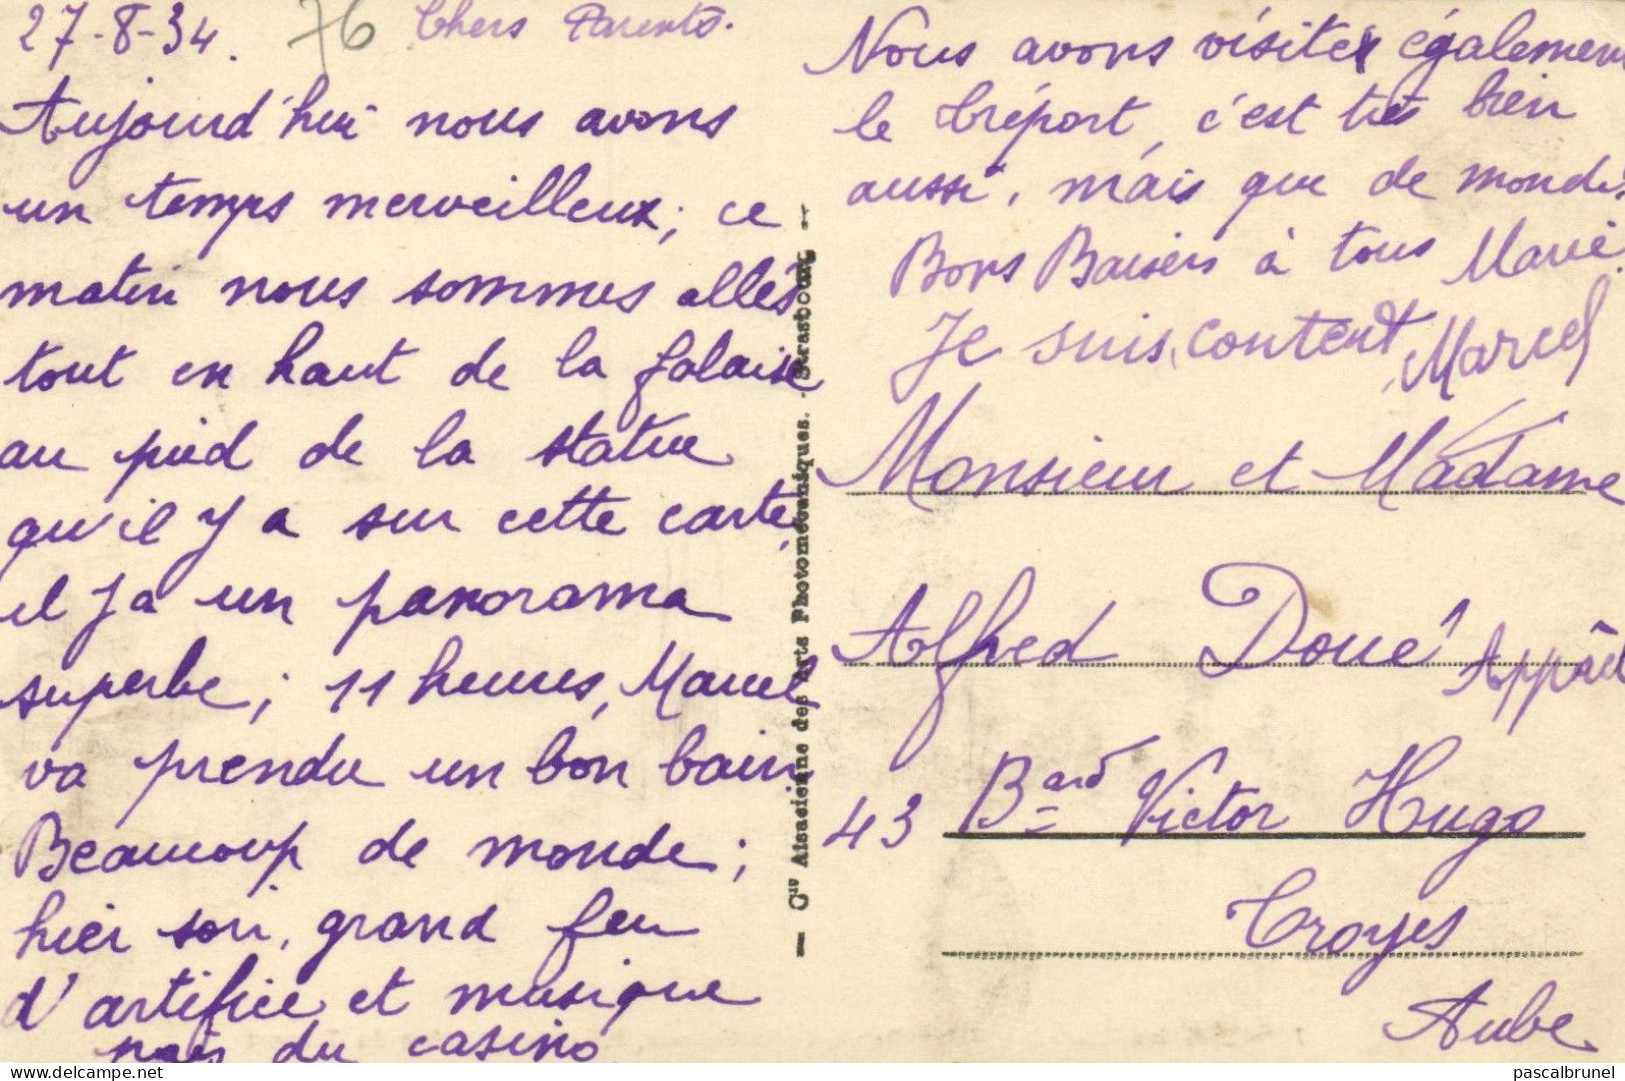 27-8-34. 76 Chers Parents.
Aujourd'hui nous avons
un temps merveilleux; ce
matin nous sommes allés
tout en haut de la falaise
au pied de la statue
qu'il y a sur cette carte,
il y a un panorama
superbe; 11 heures, Marcel
va prendre un bon bain
Beaucoup de monde;
hier soir, grand feu
d'artifice et musique
près du casino
— Cie Alsacienne des Arts Photomécaniques. - Strasbourg —
Nous avons visiter également
le Tréport, c'est très bien
aussi, mais que de monde.
Bons Baisers à tous Marie.
Je suis content, Marcel
Monsieur et Madame
Alfred Doué Appart
43 Bard Victor Hugo
Troyes
Aube
delcampe.net
pascalbrunel